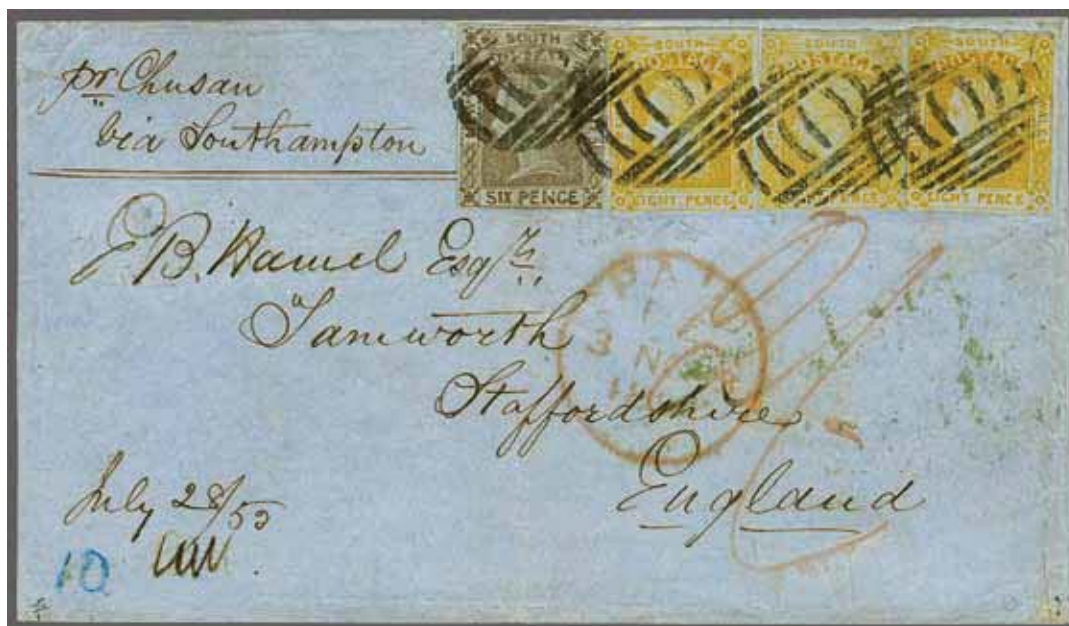 pr Chusan
via Southampton
SOUTH
SIX PENCE
SOUTH
POSTAGE
EIGHT PENCE
SOUTH
POSTAGE
PENCE
SOUTH
POSTAGE
EIGHT PENCE
E. B. Hamel Esqre
Tamworth
Staffordshire
England
PAID
3 N
July 28/53
10